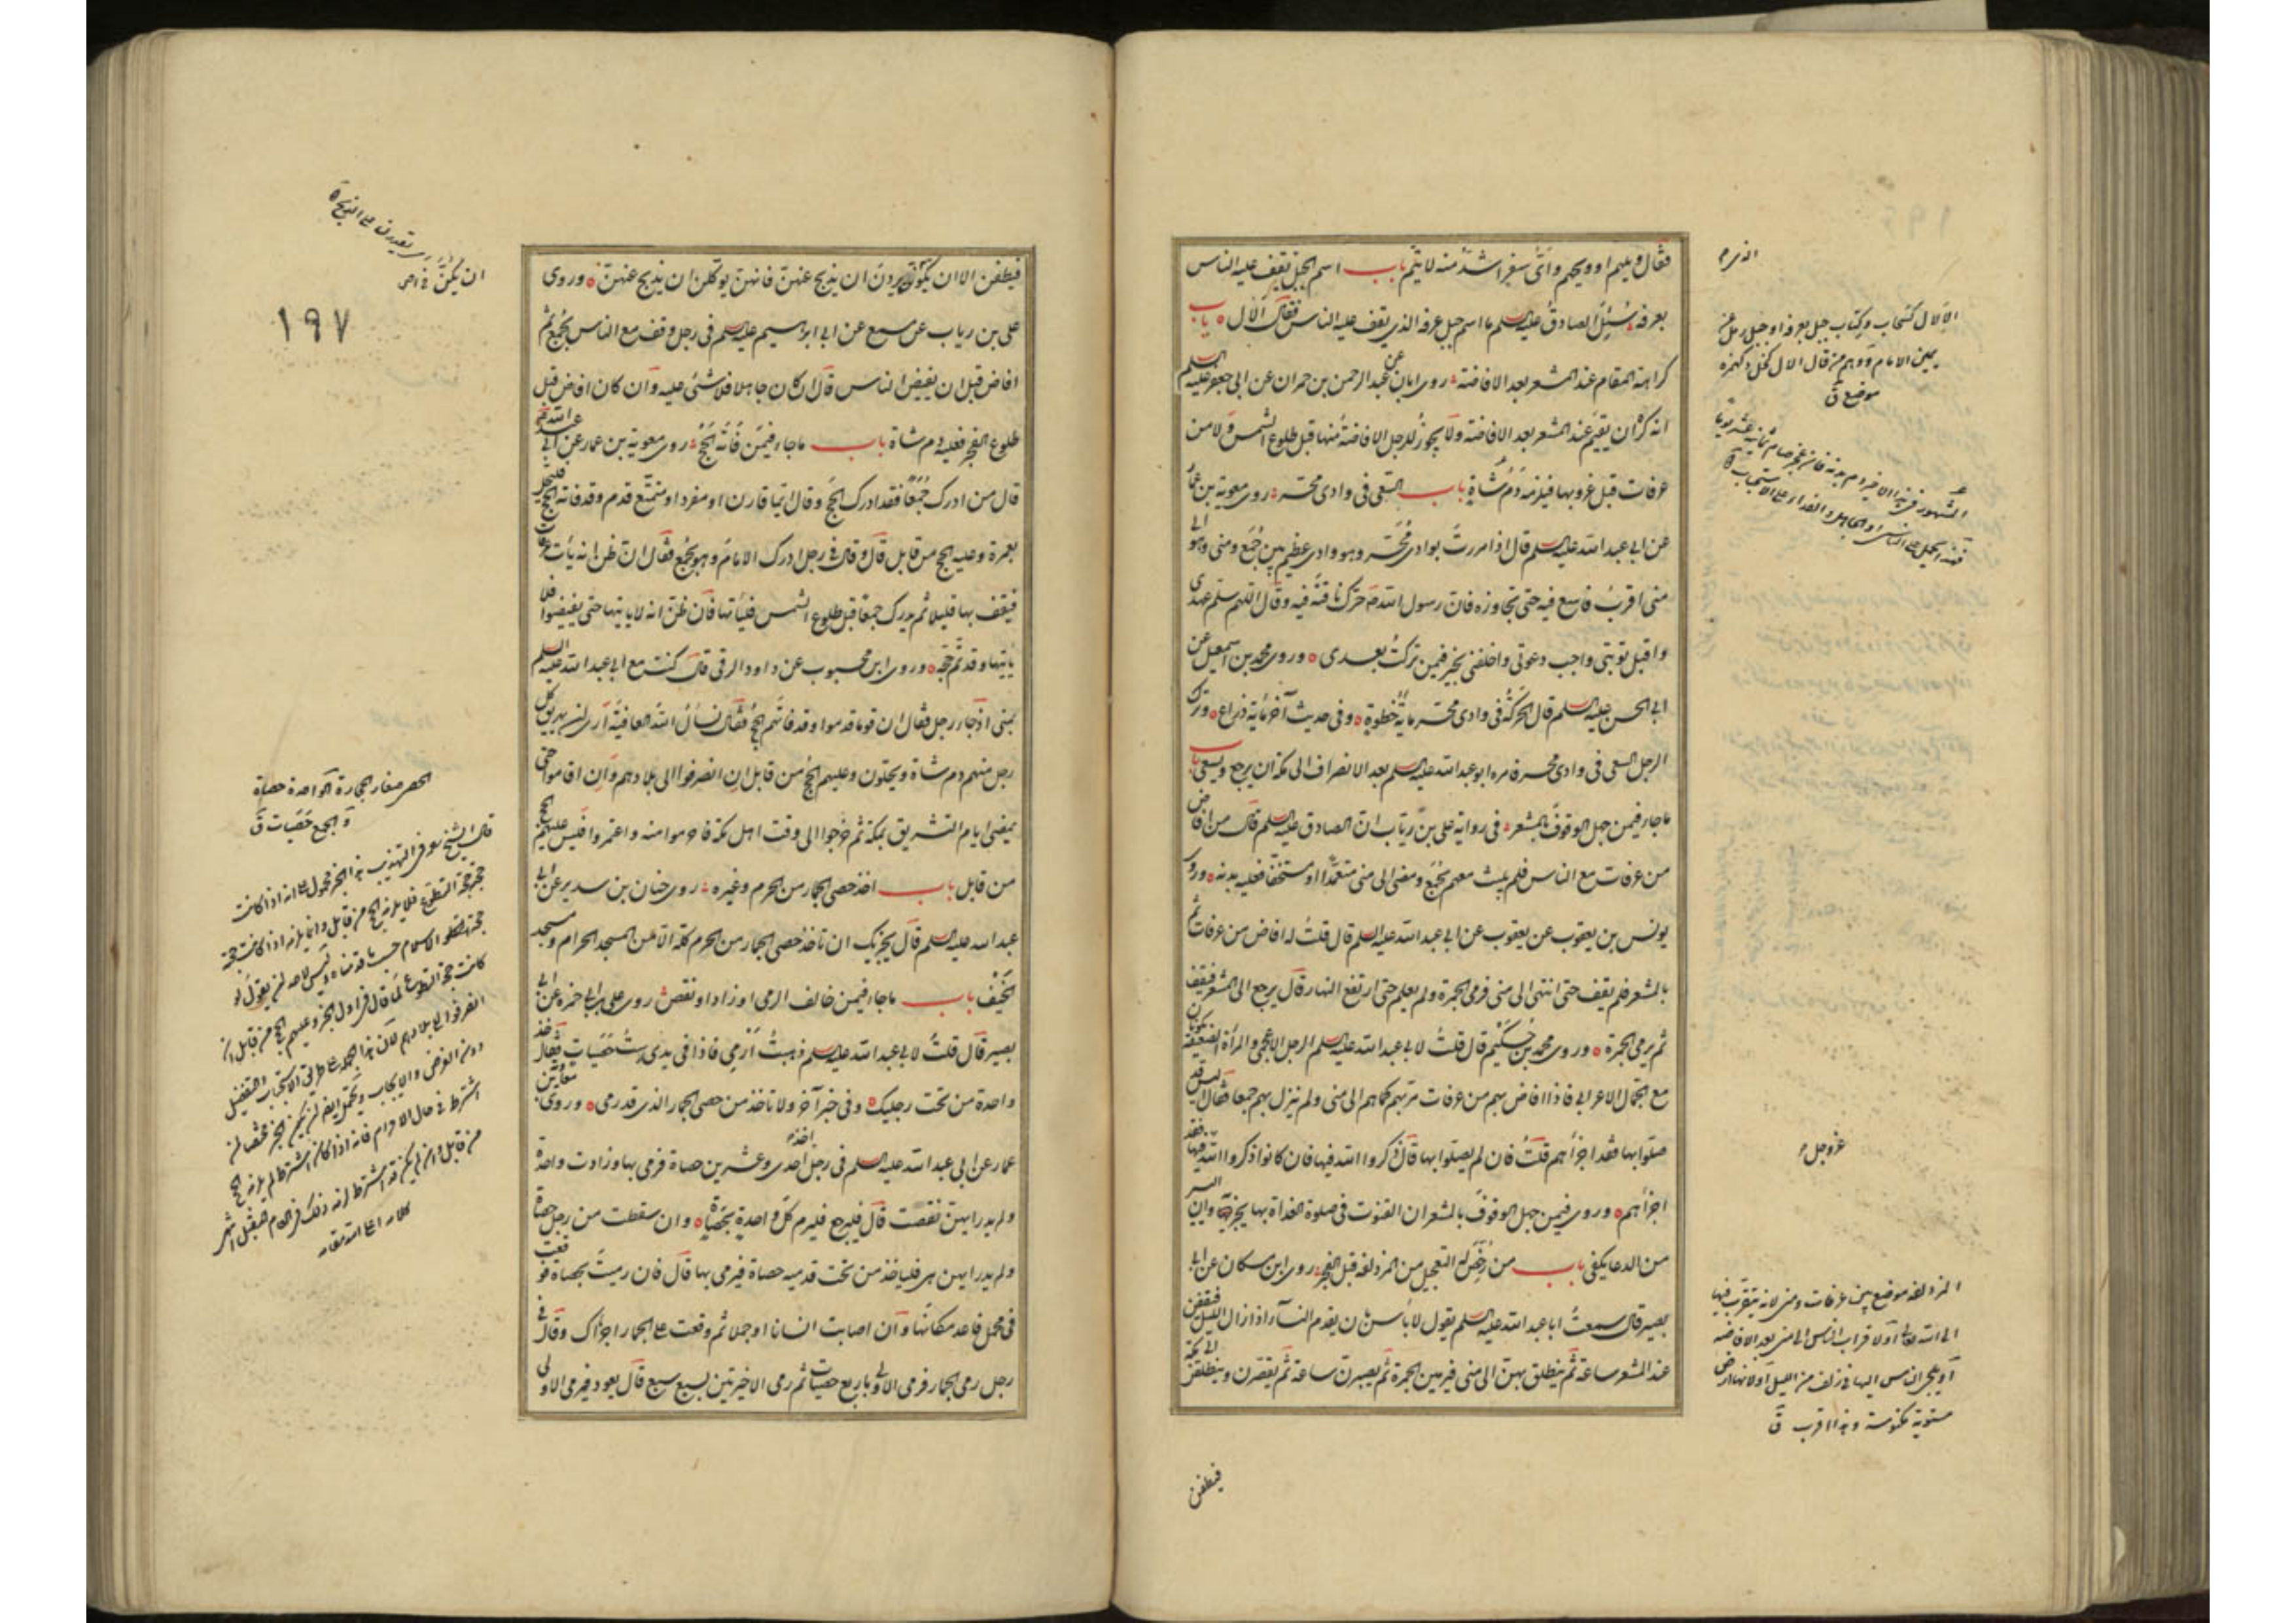 فقال ويلهم او ويحهم واىّ سفر اشدّ منه لا يتم باب اسم الجبل يقف عليه الناس
بعرفة سُئِل الصادق عليه السلم ما اسم جبل عرفة الذى يقف عليه الناس فقال الَال باب
كراهة المقام عند المشعر بعد الافاضة روى ابان عن عبد الرحمن بن حمران عن ابى جعفر عليه السلم
انه كره ان يقيم عند المشعر بعد الافاضة ولا يجوز للرجل الافاضة منها قبل طلوع الشمس ولا من
عرفات قبل غروبها فيلزمه دم شاة باب السعى فى وادى محسّر روى معوية بن عمار
عن ابى عبد الله عليه السلم قال اذا مررت بوادى مُحَسّر وهو وادى عظيم بين جُمَع ومنى وهو الى
منى اقرب فاسع فيه حتى تجاوزه فان رسول الله ص حرّك ناقته فيه وقال اللهم سلم عهدى
واقبل توبتى واجب دعوتى واخلفنى بخير فيمن تركت بعدى وروى محمد بن اسمعيل عن
ابى الحسن عليه السلم قال الحركة فى وادى محسّر ماية خطوة وفى حديث آخر ماية ذراع وترك
الرجل السعى فى وادى محسر فامره ابو عبد الله عليه السلم بعد الانصراف الى مكة ان يرجع ويسعى باب
ما جاء فيمن جهل الوقوف بالمشعر فى رواية على بن رياب ان الصادق عليه السلم قال من افاض
من عرفات مع الناس فلم يلبث معهم بجُمَع ومضى الى منى متعمّدًا او مستخفًا فعليه بدنة وروى
يونس بن يعقوب عن يعقوب عن ابى عبد الله عليه السلم قال قلت له افاض من عرفات ثم
بالمشعر فلم يقف حتى انتهى الى منى فرمى الجمرة ولم يعلم حتى ارتفع النهار قال يرجع الى المشعر فيقف
ثم يرمى الجمرة وروى محمد بن حكيم قال قلت لابى عبد الله عليه السلم الرجل الاعجمى والمرأة الضعيفة يكونان
مع الجمّال الاعرابى فاذا افاض بهم من عرفات مرّ بهم كما هم الى منى ولم ينزل بهم جمعا فقال اليس قد
صلّوا بها فقد اجزأهم قلت فان لم يصلّوا بها قال ذكروا الله فيها فان كانوا ذكروا الله فيها فقد
اجزأهم وروى فيمن جهل الوقوف بالمشعر ان القنوت فى صلوة الغداة بها يجزيه وان اليسير
من الدعا يكفى باب من رُخّص له التعجيل من المزدلفة قبل الفجر روى ابن مسكان عن ابى
بصير قال سمعت ابا عبد الله عليه السلم يقول لا بأس بان يقدم النسآء اذا زال الليل فيقفن
عند المشعر ساعة ثم ينطلق بهن الى منى فيرمين الجمرة ثم يصبرن ساعة ثم يقصّرن وينطلقن الى مكة
فيطفن
الالال كسحاب وكتاب جبل بعرفة او حبل رمل عن
يمين الامام ووهم من قال الال كخل وكهمزة
موضع ق
عز وجل
المزدلفة موضع بين عرفات ومنى لانه يتقرب فيها
الى الله تعالى او لاقتراب الناس الى منى بعد الافاضة
او لمجى الناس اليها فى زلف من الليل او لانها ارض
مستوية مكنوسة وهذا اقرب ق
فيطفن الا ان يكونّ يردن ان يذبح عنهن فانهنّ يوكلن ان يذبح عنهن وروى
على بن رياب عن مسمع عن ابى ابراهيم عليه السلم فى رجل وقف مع الناس بجُمَع ثم
افاض قبل ان يفيض الناس قال ان كان جاهلا فلا شئ عليه وان كان افاض قبل
طلوع الفجر فعليه دم شاة باب ما جاء فيمن فاته الحج روى معوية بن عمار عن ابى عبد الله
قال من ادرك جُمَعًا فقد ادرك الحج وقال ايما قارن او مفرد او متمتع قدم وقد فاته الحج فليحلّ
بعمرة وعليه الحج من قابل قال وقال فى رجل ادرك الامام وهو بجُمَع فقال ان ظن انه يأت عرفات
فيقف بها قليلا ثم يدرك جمعًا قبل طلوع الشمس فليأتها فان ظن انه لا ياتيها حتى يفيضوا فلا
ياتيها وقد تم حجّه وروى ابن محبوب عن داود الرقى قال كنت مع ابى عبد الله عليه السلم
بمنى اذ جاء رجل فقال ان قوما قدموا وقد فاتهم الحج فقال نسأل الله العافية ارى ان يهريق كل
رجل منهم دم شاة ويحلّون وعليهم الحج من قابل ان انصرفوا الى بلادهم وان اقاموا حتى
يمضى ايام التشريق بمكة ثم خرجوا الى وقت اهل مكة فاحرموا منه واعتمروا فليس عليهم الحج
من قابل باب اخذ حصى الجمار من الحرم وغيره روى حنان بن سدير عن ابى
عبد الله عليه السلم قال يجزيك ان تاخذ حصى الجمار من الحرم كله الّا من المسجد الحرام ومسجد
الخيف باب ما جاء فيمن خالف الرمى او زاد او نقص روى على بن ابى حمزة عن ابى
بصير قال قلت لابى عبد الله عليه السلم ذهبت ارمى فاذا فى يدى ست حصيات فقال خذ
واحدة من تحت رجليك وفى خبر آخر ولا تاخذ من حصى الجمار الذى قد رمى وروى معوية بن
عمار عن ابى عبد الله عليه السلم فى رجل اخذ احدى وعشرين حصاة فرمى بها وزادت واحدة
ولم يدر ايهن نقصت قال فليرجع فليرم كل واحدة بحصاة وان سقطت من رجل حصاة
ولم يدر ايهن هى فلياخذ من تحت قدميه حصاة فيرمى بها قال فان رميت بحصاة فوقعت
فى محمل فاعد مكانها وان اصابت انسانا او جملا ثم وقعت على الجمار اجزاك وقال فى
رجل رمى الجمار فرمى الاولى باربع حصيات ثم رمى الاخيرتين بسبع سبع قال يعود فيرمى الاولى
١٩٧
الحصى صغار الحجارة الواحدة حصاة
والجمع حَصَيات ق
قال الشيخ فى التهذيب هذا الخبر محمول على انه اذا كانت
حجته حجة التطوع فلا يلزمه الحج من قابل وانما يلزمه اذا كانت حجته